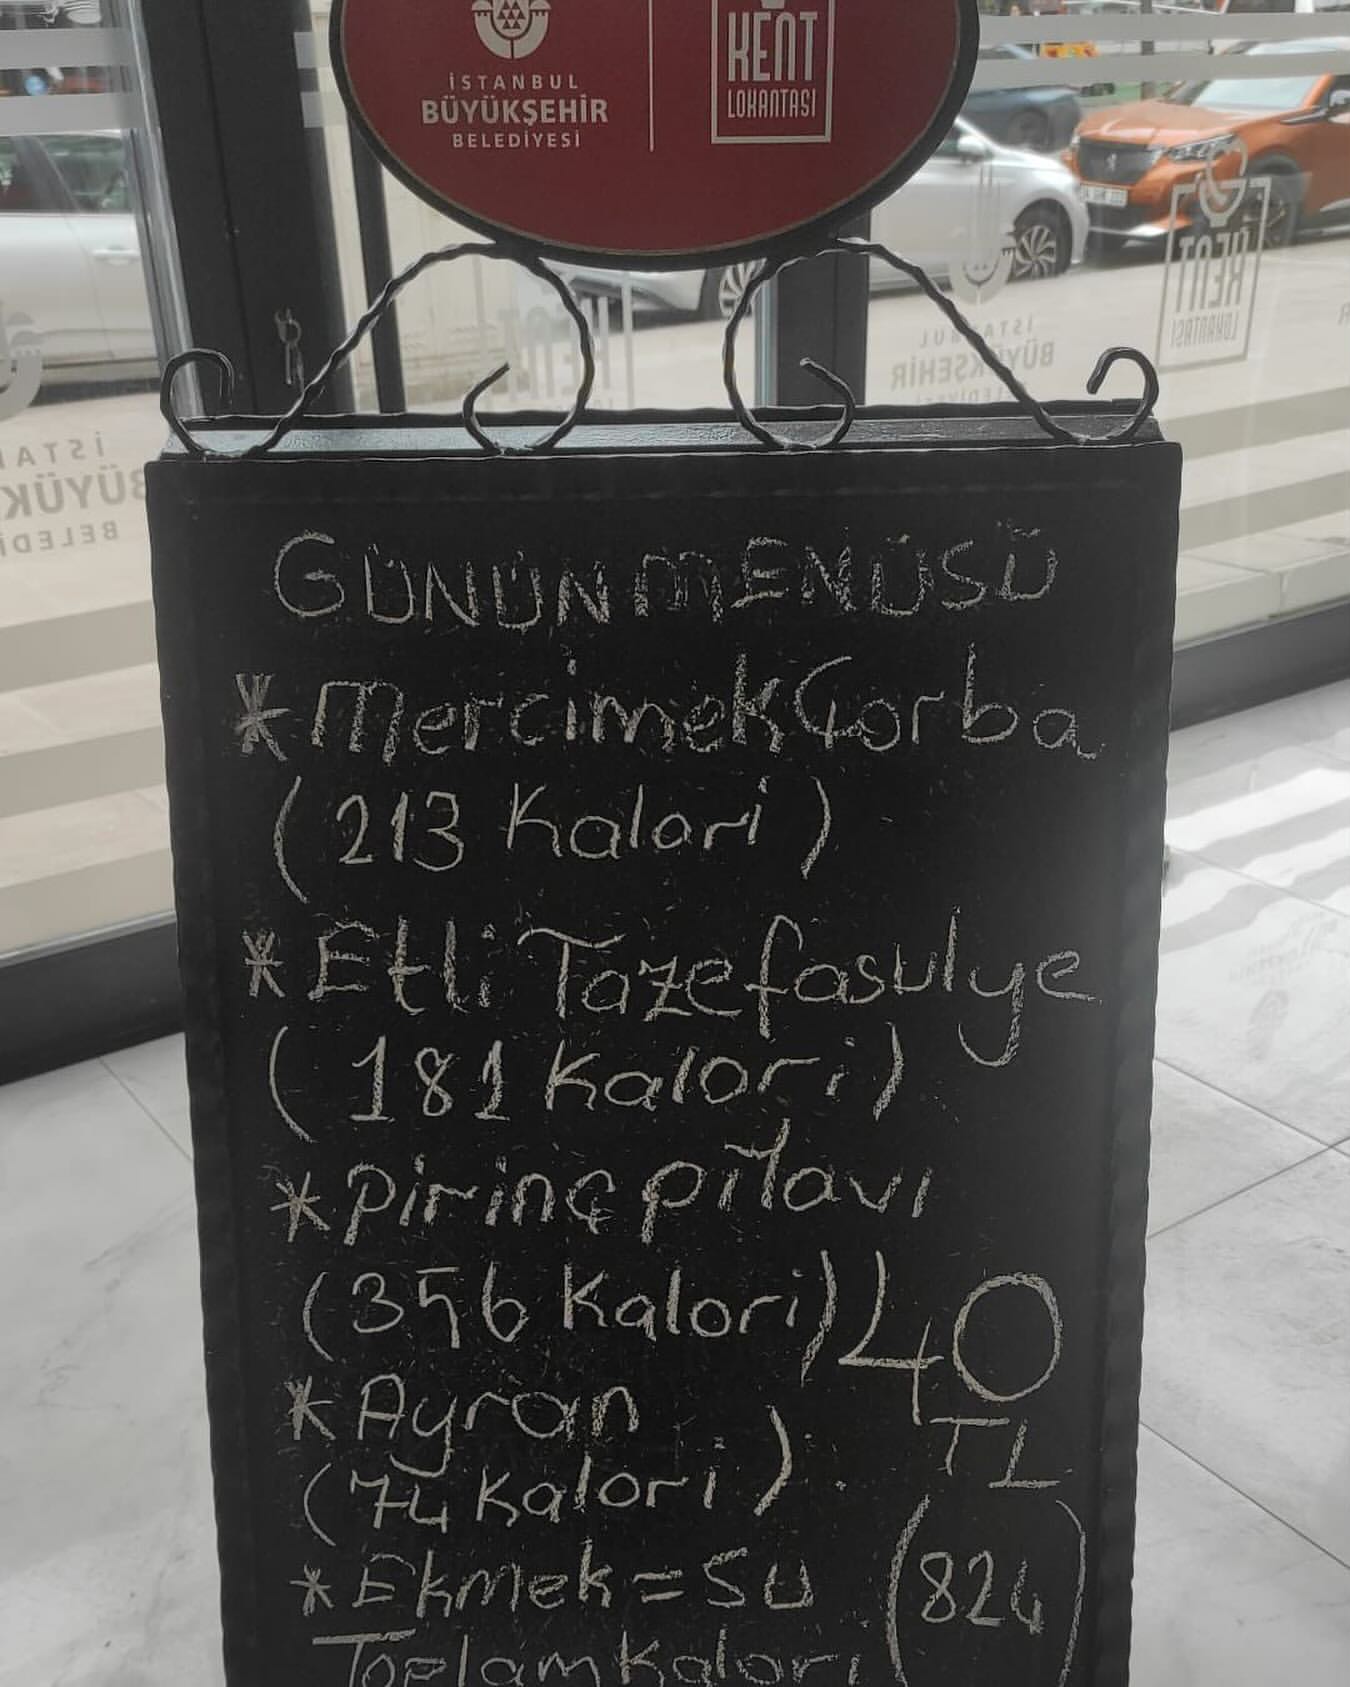 İSTANBUL
BÜYÜKŞEHİR
BELEDİYESİ
KENT
LOKANTASI
GÜNÜN MENÜSÜ
*Mercimek Çorba
(213 Kalori)
*Etli Taze fasulye
(181 Kalori)
*Pirinç pilavı
(356 Kalori)
40
TL
*Ayran
(74 Kalori)
*Ekmek = Su
(824)
Toplam Kalori
KENT
LOKANTASI
İSTANBUL
BÜYÜKŞEHİR